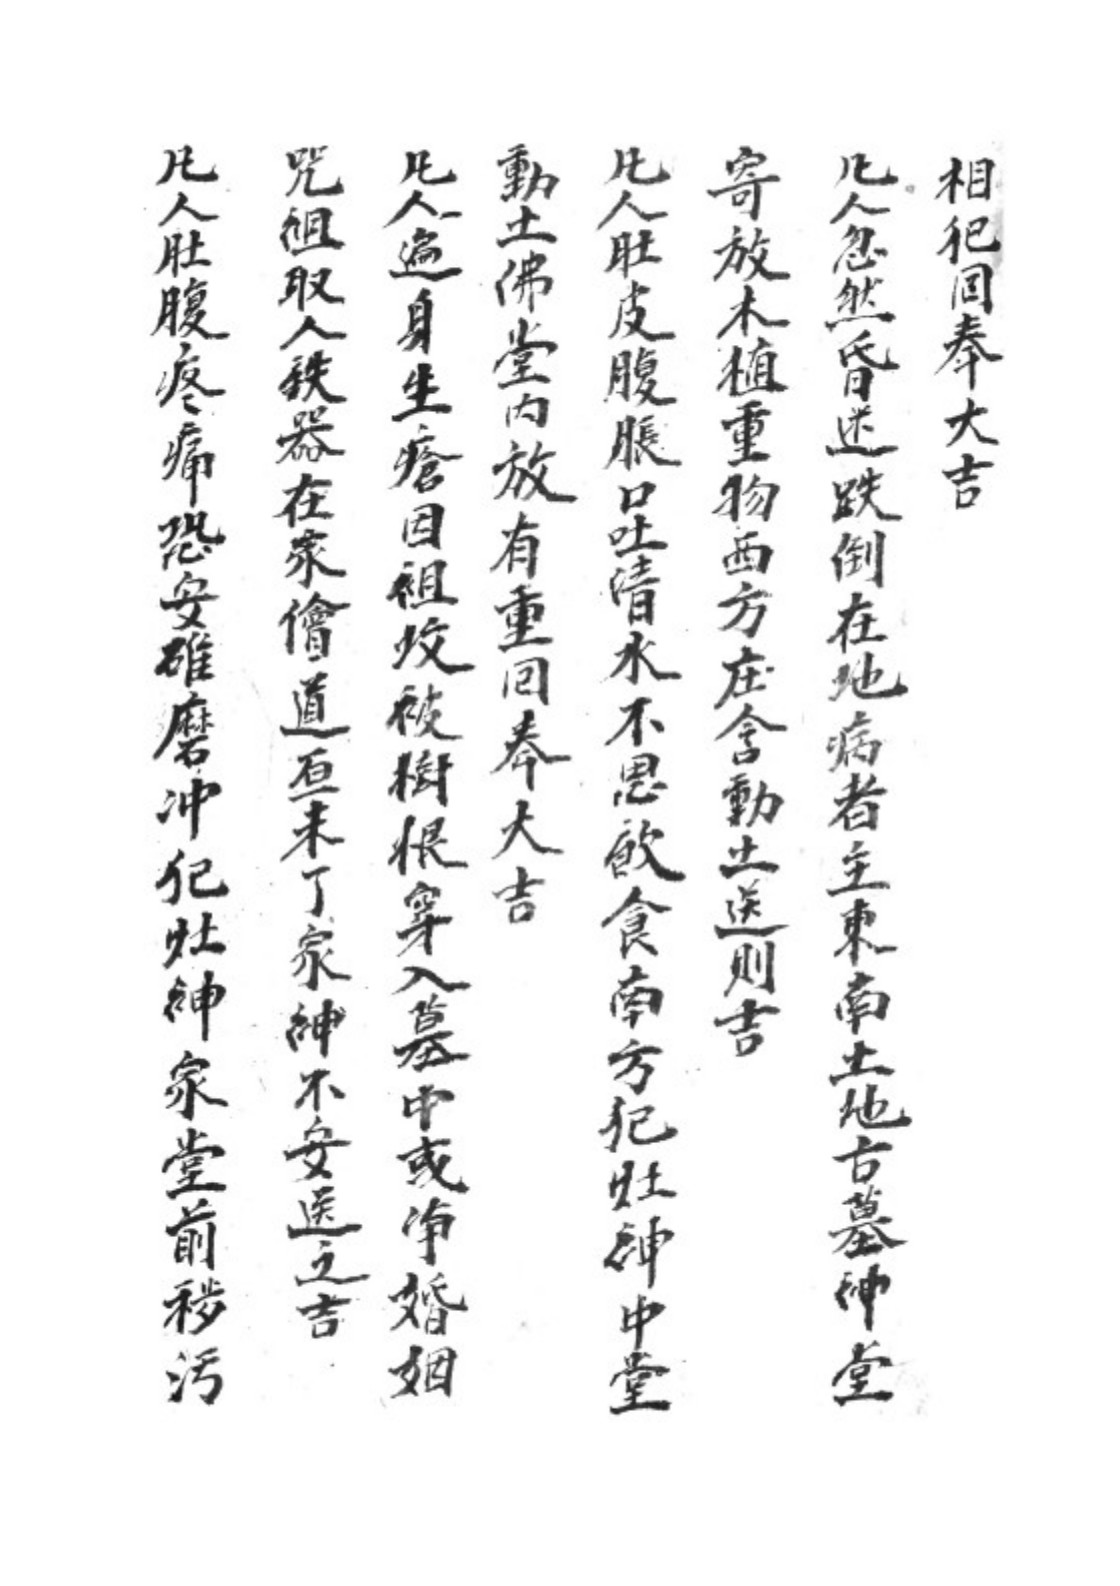 相犯回奉大吉
凡人忽然昏迷跌倒在地病者主東南土地古墓神堂
寄放木植重物西方庄舍動土送則吉
凡人肚皮腹脹口吐清水不思飲食南方犯灶神中堂
動土佛堂內放有重回奉大吉
凡人遍身生瘡因祖坟被樹根穿入墓中或淨婚姻
咒祖取人鉄器在家儈道亙未了家神不安送之吉
凡人肚腹疼痛恐安碓磨冲犯灶神家堂前穢污